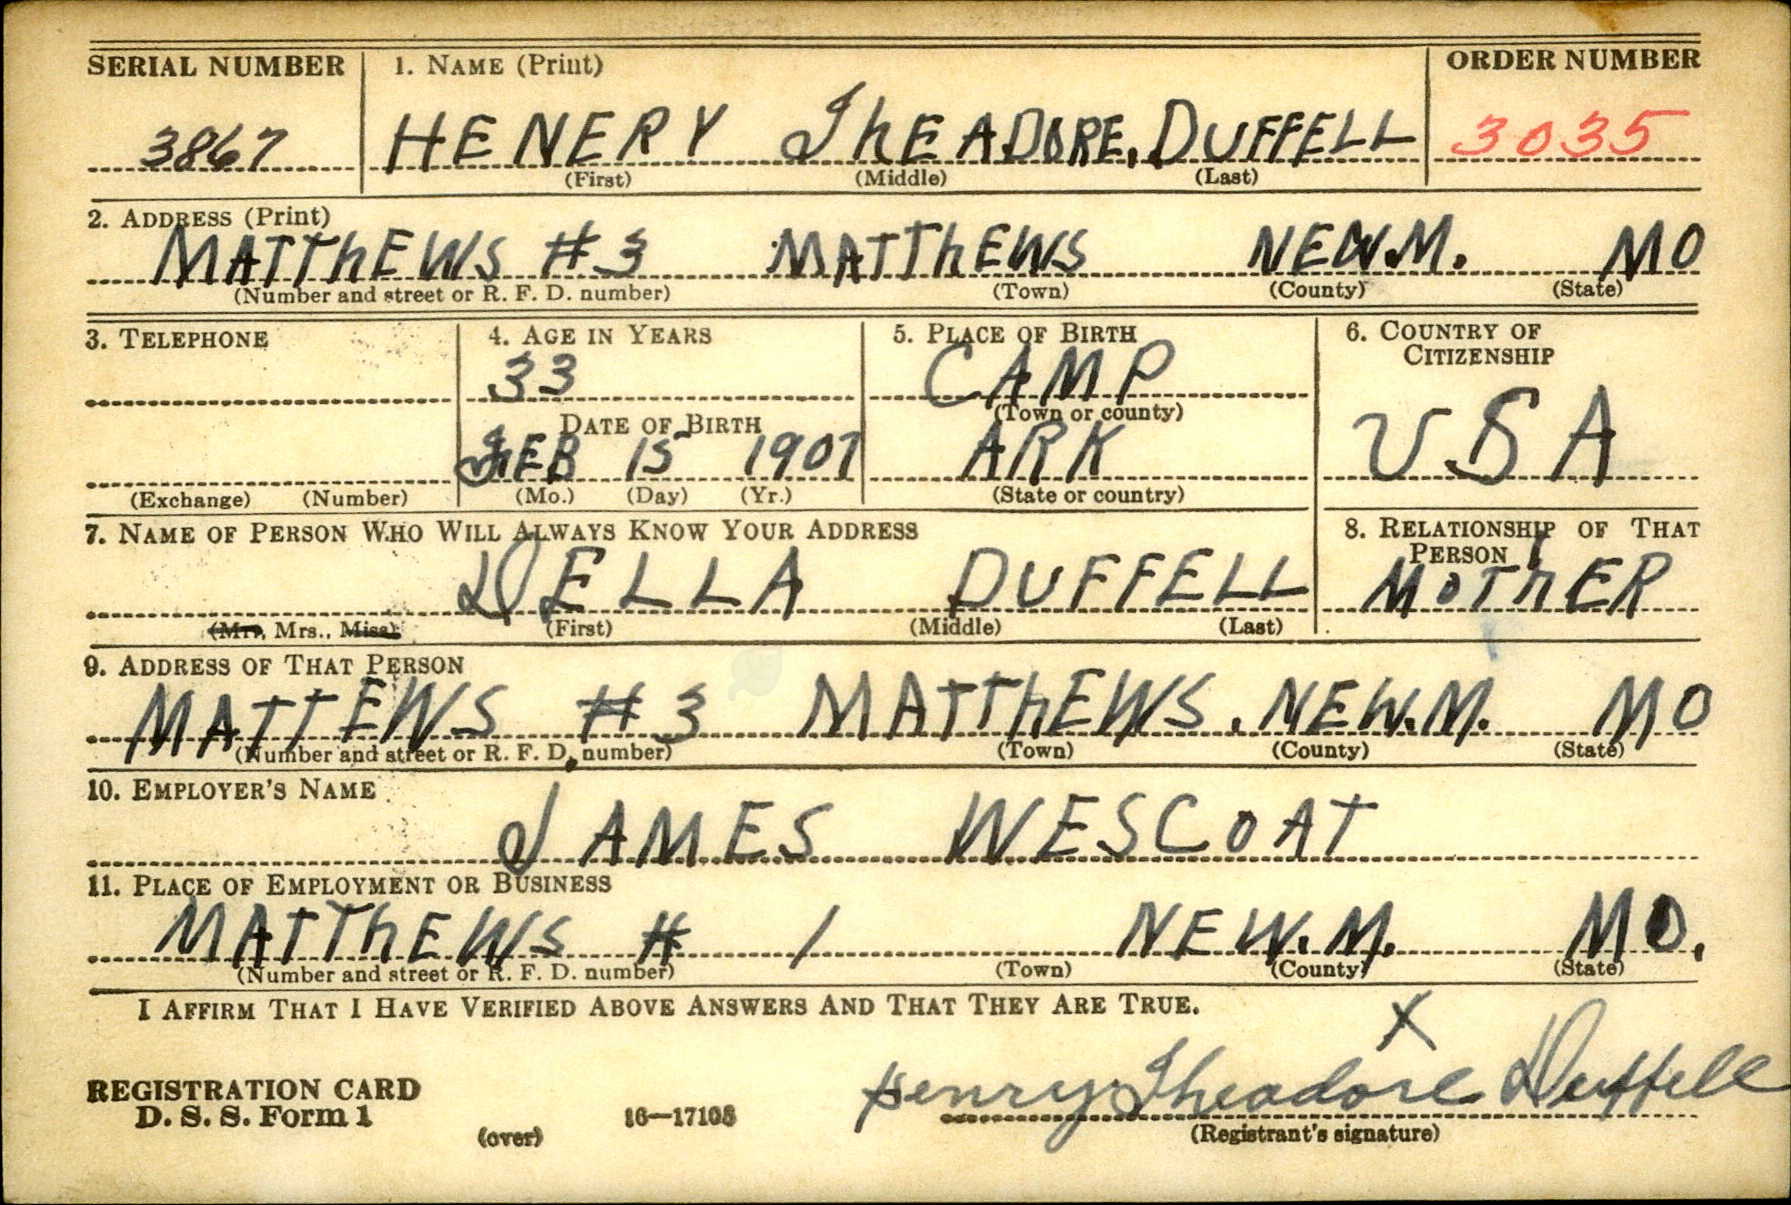 SERIAL NUMBER 1. NAME (Print) ORDER NUMBER
3867 HENERY ThEADORE, DUFFELL 3035
(First) (Middle) (Last)
2. ADDRESS (Print)
MATThEWS #3 MATThEWS NEW.M. MO
(Number and street or R. F. D. number) (Town) (County) (State)
3. TELEPHONE 4. AGE IN YEARS 5. PLACE OF BIRTH 6. COUNTRY OF
CITIZENSHIP
33 CAMP
DATE OF BIRTH (Town or county)
USA
FEB 15 1907 ARK
(Exchange) (Number) (Mo.) (Day) (Yr.) (State or country)
7. NAME OF PERSON WHO WILL ALWAYS KNOW YOUR ADDRESS 8. RELATIONSHIP OF THAT
PERSON
DELLA DUFFELL MOThER
(Mr., Mrs., Miss) (First) (Middle) (Last)
9. ADDRESS OF THAT PERSON
MATTEWS #3 MATThEWS. NEW.M. MO
(Number and street or R. F. D. number) (Town) (County) (State)
10. EMPLOYER'S NAME
JAMES WESCOAT
11. PLACE OF EMPLOYMENT OR BUSINESS
MATThEWS # 1 NEW.M. MO.
(Number and street or R. F. D. number) (Town) (County) (State)
I AFFIRM THAT I HAVE VERIFIED ABOVE ANSWERS AND THAT THEY ARE TRUE.
X
REGISTRATION CARD Henry Theadore Duffell
D. S. S. Form 1 (over) 16—17105 (Registrant's signature)